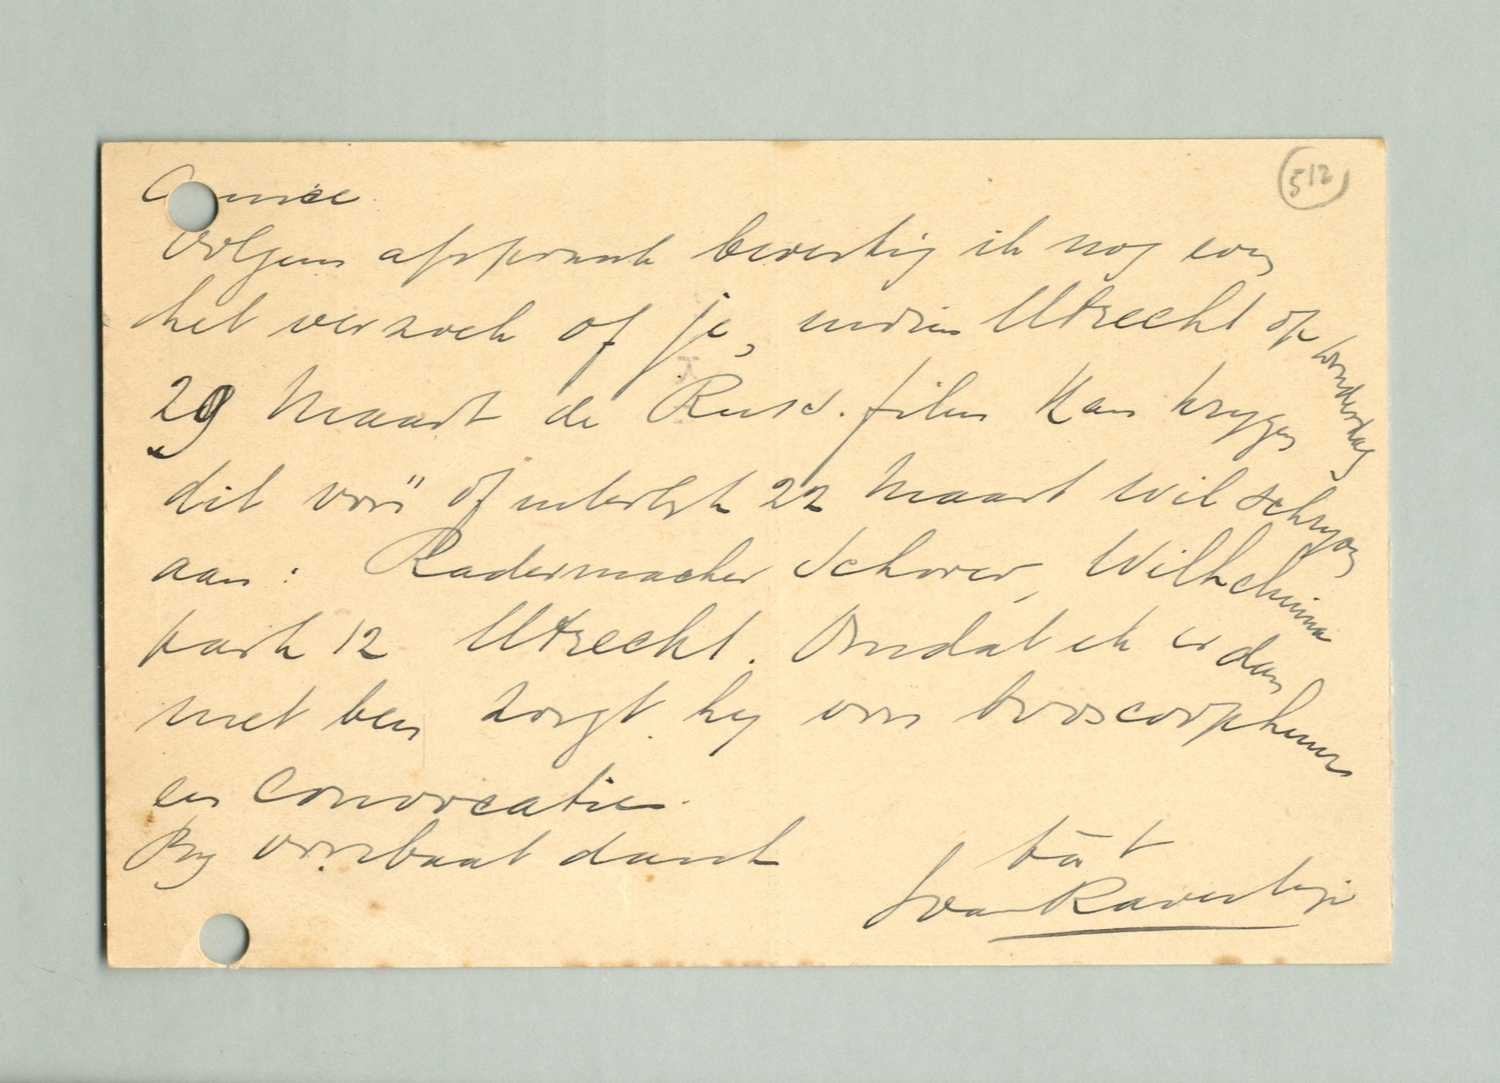 512
Amice
Volgens afspraak bevestig ik nog eens
het verzoek of je, indien Utrecht op donderdag
29 Maart de Russ. film kan krygen
dit vóór of uiterlyk 22 Maart wil schryven
aan: Radermacher Schorer, Wilhelmina
park 12 Utrecht. Omdat ik er dan
niet ben zorgt hy voor
en convocaties.
By voorbaat dank
tát
van Ravesteyn